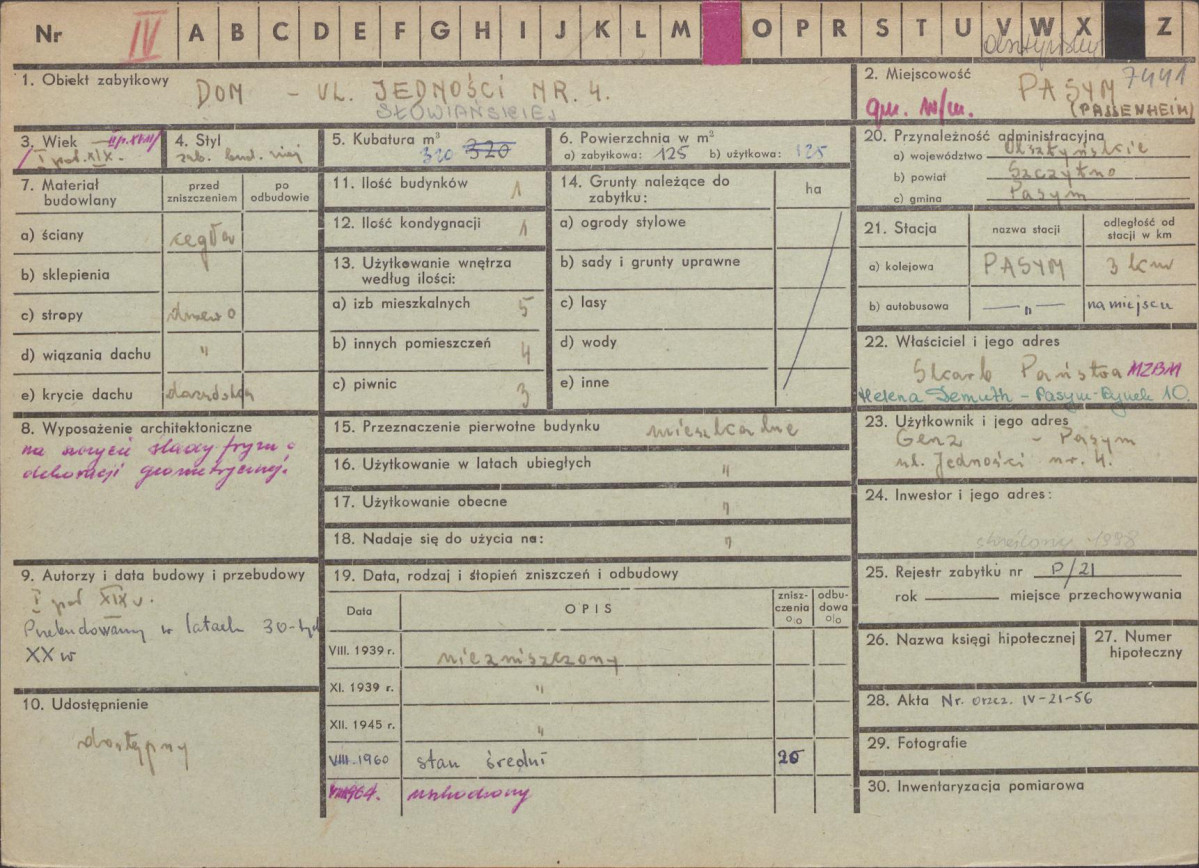 Nr IV A B C D E F G H I J K L M O P R S T U V W X Z
1. Obiekt zabytkowy DOM - UL. JEDNOŚCI NR. 4.
SŁOWIAŃSKIEJ
2. Miejscowość PASYM 7441
gm. w/m. (PASSENHEIM)
3. Wiek II p. XVIII/
I poł. XIX.
4. Styl
zab. bud. miej
5. Kubatura m³
320 320
6. Powierzchnia w m²
a) zabytkowa: 125 b) użytkowa: 125
20. Przynależność administracyjna
a) województwo Olsztyńskie
b) powiat Szczytno
c) gmina Pasym
7. Materiał budowlany
przed zniszczeniem
po odbudowie
a) ściany cegła
b) sklepienia
c) stropy drewno
d) wiązania dachu "
e) krycie dachu dachówka
11. Ilość budynków 1
12. Ilość kondygnacji 1
13. Użytkowanie wnętrza
według ilości:
a) izb mieszkalnych 5
b) innych pomieszczeń 4
c) piwnic 3
14. Grunty należące do
zabytku:
ha
a) ogrody stylowe
b) sady i grunty uprawne
c) lasy
d) wody
e) inne
21. Stacja
nazwa stacji
odległość od
stacji w km
a) kolejowa PASYM 3 km
b) autobusowa —"— na miejscu
22. Właściciel i jego adres
Skarb Państwa MZBM
Helena Demuth - Pasym-Rynek 10.
8. Wyposażenie architektoniczne
na szczycie ślady fryzu o
dekoracji geometrycznej.
15. Przeznaczenie pierwotne budynku mieszkalne
16. Użytkowanie w latach ubiegłych "
17. Użytkowanie obecne "
18. Nadaje się do użycia na: "
23. Użytkownik i jego adres
Genz - Pasym
ul. Jedności nr. 4.
24. Inwestor i jego adres:
skreślony 1998
9. Autorzy i data budowy i przebudowy
I poł XIX w.
Przebudowany w latach 30-tych
XX w
19. Data, rodzaj i stopień zniszczeń i odbudowy
Data
OPIS
znisz-
czenia
o/o
odbu-
dowa
o/o
VIII. 1939 r. niezniszczony
XI. 1939 r. "
XII. 1945 r. "
VIII.-1960 stan średni 25
1964. uszkodzony
25. Rejestr zabytku nr P/21
rok miejsce przechowywania
26. Nazwa księgi hipotecznej
27. Numer
hipoteczny
10. Udostępnienie
dostępny
28. Akta Nr. orzcz. IV-21-56
29. Fotografie
30. Inwentaryzacja pomiarowa